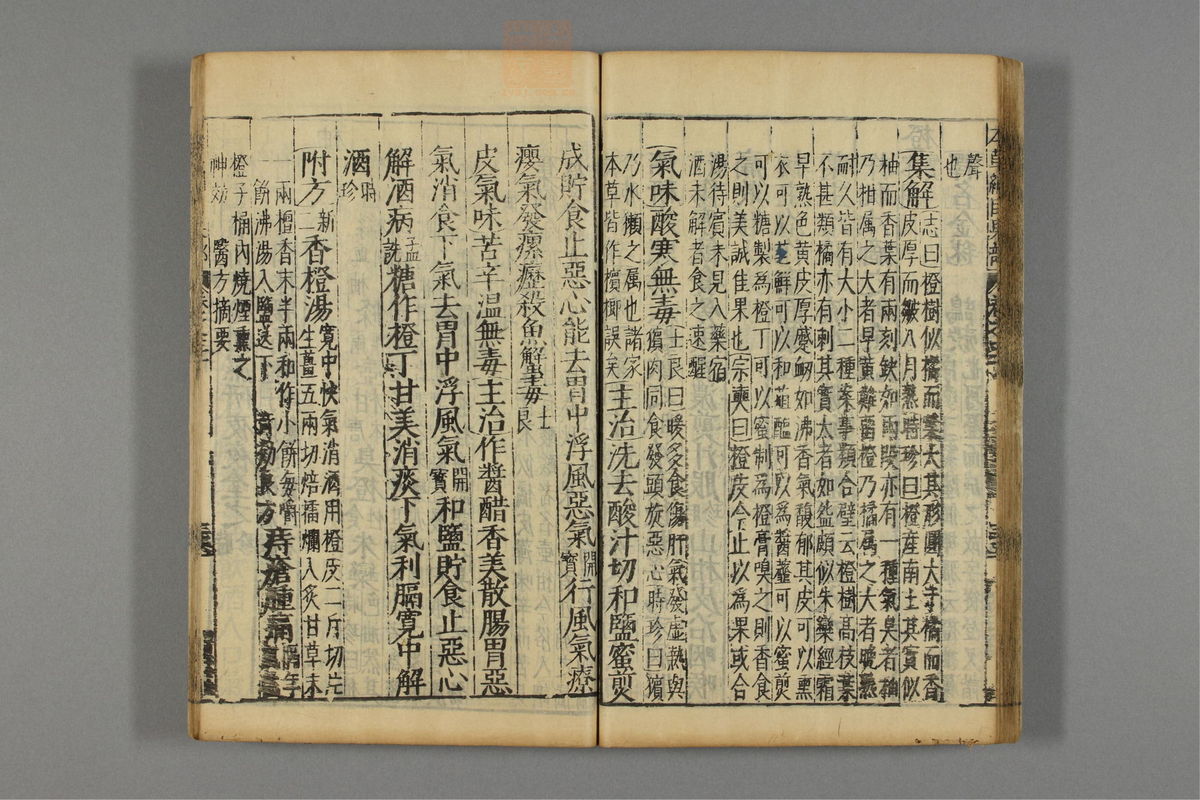 聲
也
集解志曰橙樹似橘而葉大其形圓大于橘而香
皮厚而皺八月熟時珍曰橙產南土其實似
柚而香葉有兩刻缺如兩段亦有一種氣臭者柚
乃柑属之大者早黄難留橙乃橘属之大者晚熟
耐久皆有大小二種葉事類合璧云橙樹高枝葉
不甚類橘亦有刺其實大者如盌頗似朱欒經霜
早熟色黄皮厚蹙衂如沸香氣馥郁其皮可以熏
衣可以芼鮮可以和菹醢可以為醬虀可以蜜煎
可以糖製為橙丁可以蜜制為橙膏嗅之則香食
之則美誠佳果也宗奭曰橙皮今止以為果或合
湯待賓未見入藥宿
酒未解者食之速醒
氣味酸寒無毒士良曰暖多食傷肝氣發虚熱與
㺍肉同食發頭旋惡心時珍曰㺍
乃水獺之属也諸家
本草皆作檳榔誤矣主治洗去酸汁切和鹽蜜煎
成貯食止惡心能去胃中浮風惡氣開寶行風氣療
癭氣發瘰癧殺魚解毒士良
皮氣味苦辛温無毒主治作醬醋香美散腸胃惡
氣消食下氣去胃中浮風氣開寶和鹽貯食止惡心
解酒病孟詵糖作橙丁甘美消痰下氣利膈寬中解
酒時珍
附方新二香橙湯寬中快氣消酒用橙皮二斤切片
生薑五兩切焙擂爛入炙甘草末
一兩檀香末半兩和作小餅每嚼一
餅沸湯入鹽送下 方痔瘡腫痛隔年
橙子桶內燒煙熏之
神効 醫方摘要